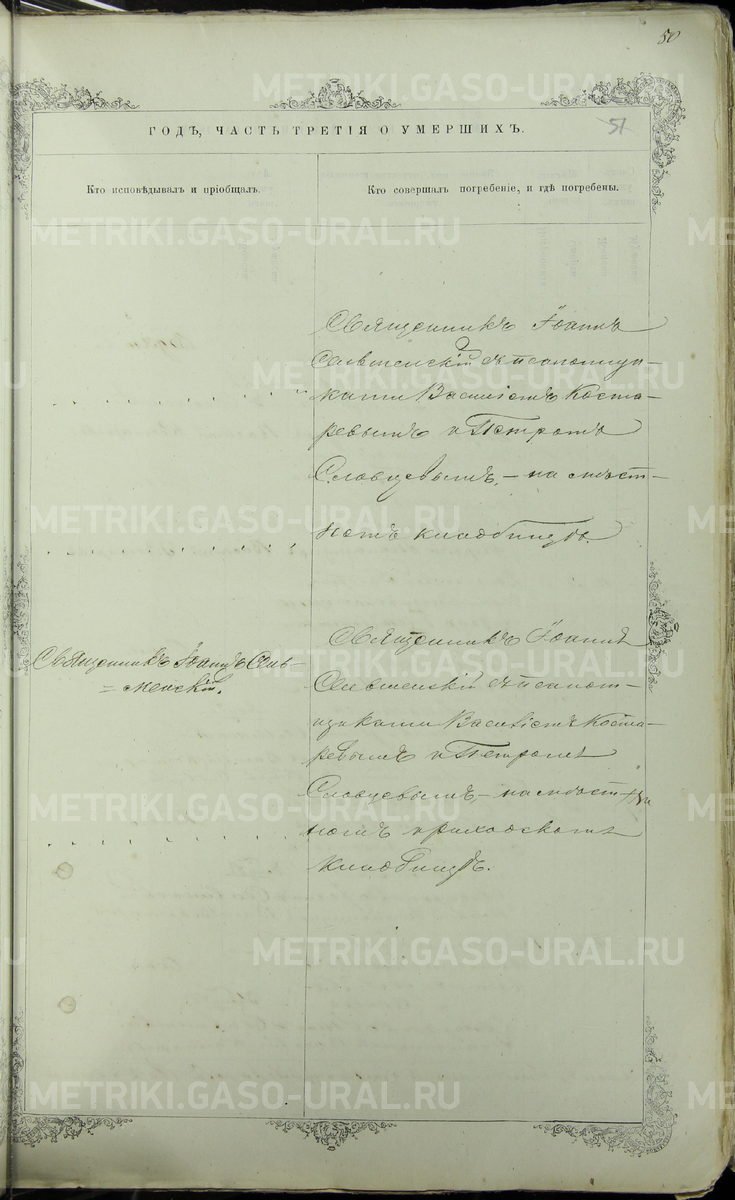 50
ГОДЪ, ЧАСТЬ ТРЕТІЯ О УМЕРШИХЪ.
51
Кто исповѣдывалъ и пріобщалъ.
Кто совершалъ погребеніе, и гдѣ погребены.
Священникъ Іоаннъ
Сельменскій съ псаломщи-
ками Василіемъ Коста-
ревымъ и Петромъ
Словцевымъ, – на мѣст-
номъ кладбищѣ.
Священникъ Іоаннъ Сель-
=менскій.
Священникъ Іоаннъ
Сельменскій съ псалом-
щиками Василіемъ Коста-
ревымъ и Петромъ
Словцевымъ – на мѣст-
номъ приходскомъ
кладбищѣ.
METRIKI.GASO-URAL.RU